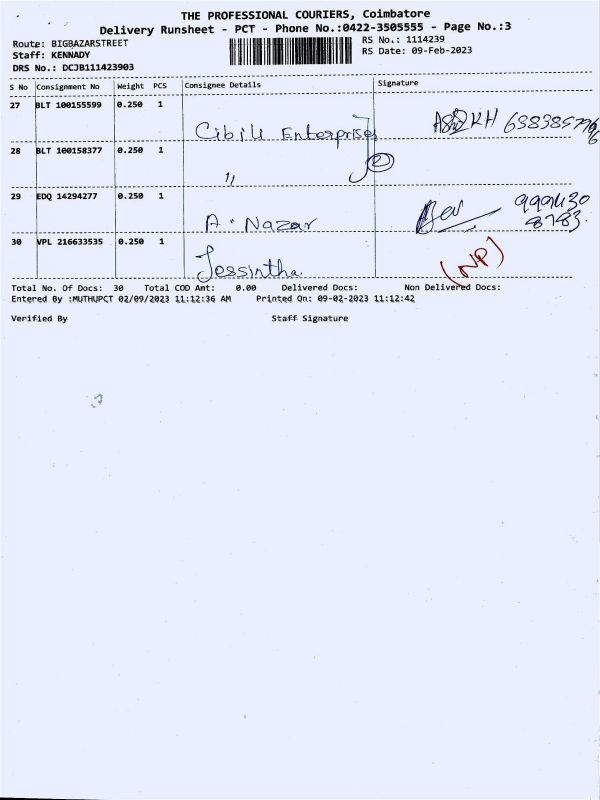 THE PROFESSIONAL COURIERS, Coimbatore
Delivery Runsheet - PCT - Phone No.:0422-3505555 - Page No.:3
Route: BIGBAZARSTREET
Staff: KENNADY
DRS No.: DCJB111423903
RS No.: 1114239
RS Date: 09-Feb-2023
S No Consignment No Weight PCS Consignee Details Signature
27 BLT 100155599 0.250 1 Cibili Enterprises
28 BLT 100158377 0.250 1 "
29 EDQ 14294277 0.250 1 A. Nazar
30 VPL 216633535 0.250 1 Jessintha (NP)
Total No. Of Docs: 30 Total COD Amt: 0.00 Delivered Docs: Non Delivered Docs:
Entered By :MUTHUPCT 02/09/2023 11:12:36 AM Printed On: 09-02-2023 11:12:42
Verified By Staff Signature